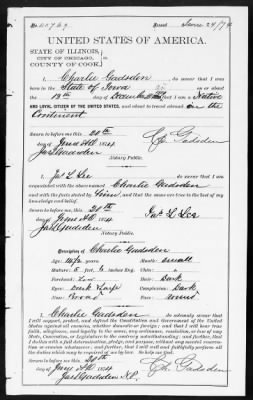 No. 20769 Issued June 24/74
UNITED STATES OF AMERICA.
STATE OF ILLINOIS,
CITY OF CHICAGO, ss.
COUNTY OF COOK,
I, Charlie Gadsden do swear that I was
born in the State of Iowa on or about
the 17th day of that I am a Native
AND LOYAL CITIZEN OF THE UNITED STATES, and about to travel abroad on the
Continent
Sworn to before me this 20th
day of June A.D. 1874 Ch. Gadsden
Jas. Gadsden
Notary Public.
I, Jas. L. Lee do swear that I am
acquainted with the above named Charlie Gadsden and
with the facts stated by him and that the same are true to the best of my knowledge
and belief.
Sworn to before me this 20th
day of June A.D. 1874 Jas. L. Lee
Jas. Gadsden
Notary Public.
Description of Charlie Gadsden
Age: Mouth: small
Stature: 5 feet, 6 inches Eng. Chin:
Forehead: Low Hair: Dark
Eyes: Complexion: Dark
Nose: Broad Face: round
I, Charlie Gadsden do solemnly swear that I
will support, protect, and defend the Constitution and Government of the United
States against all enemies, whether domestic or foreign; and that I will bear true
faith, allegiance, and loyalty to the same, any ordinance, resolution, or law of any
State, Convention, or Legislature to the contrary notwithstanding; and further, that I
do this with a full determination, pledge, and purpose, without any mental reservation
or evasion whatsoever; and further, that I will well and faithfully perform all
the duties which may be required of me by law.
Sworn to before me this 20th
day of June A.D. 1874 Ch. Gadsden
Jas. Gadsden N.P.